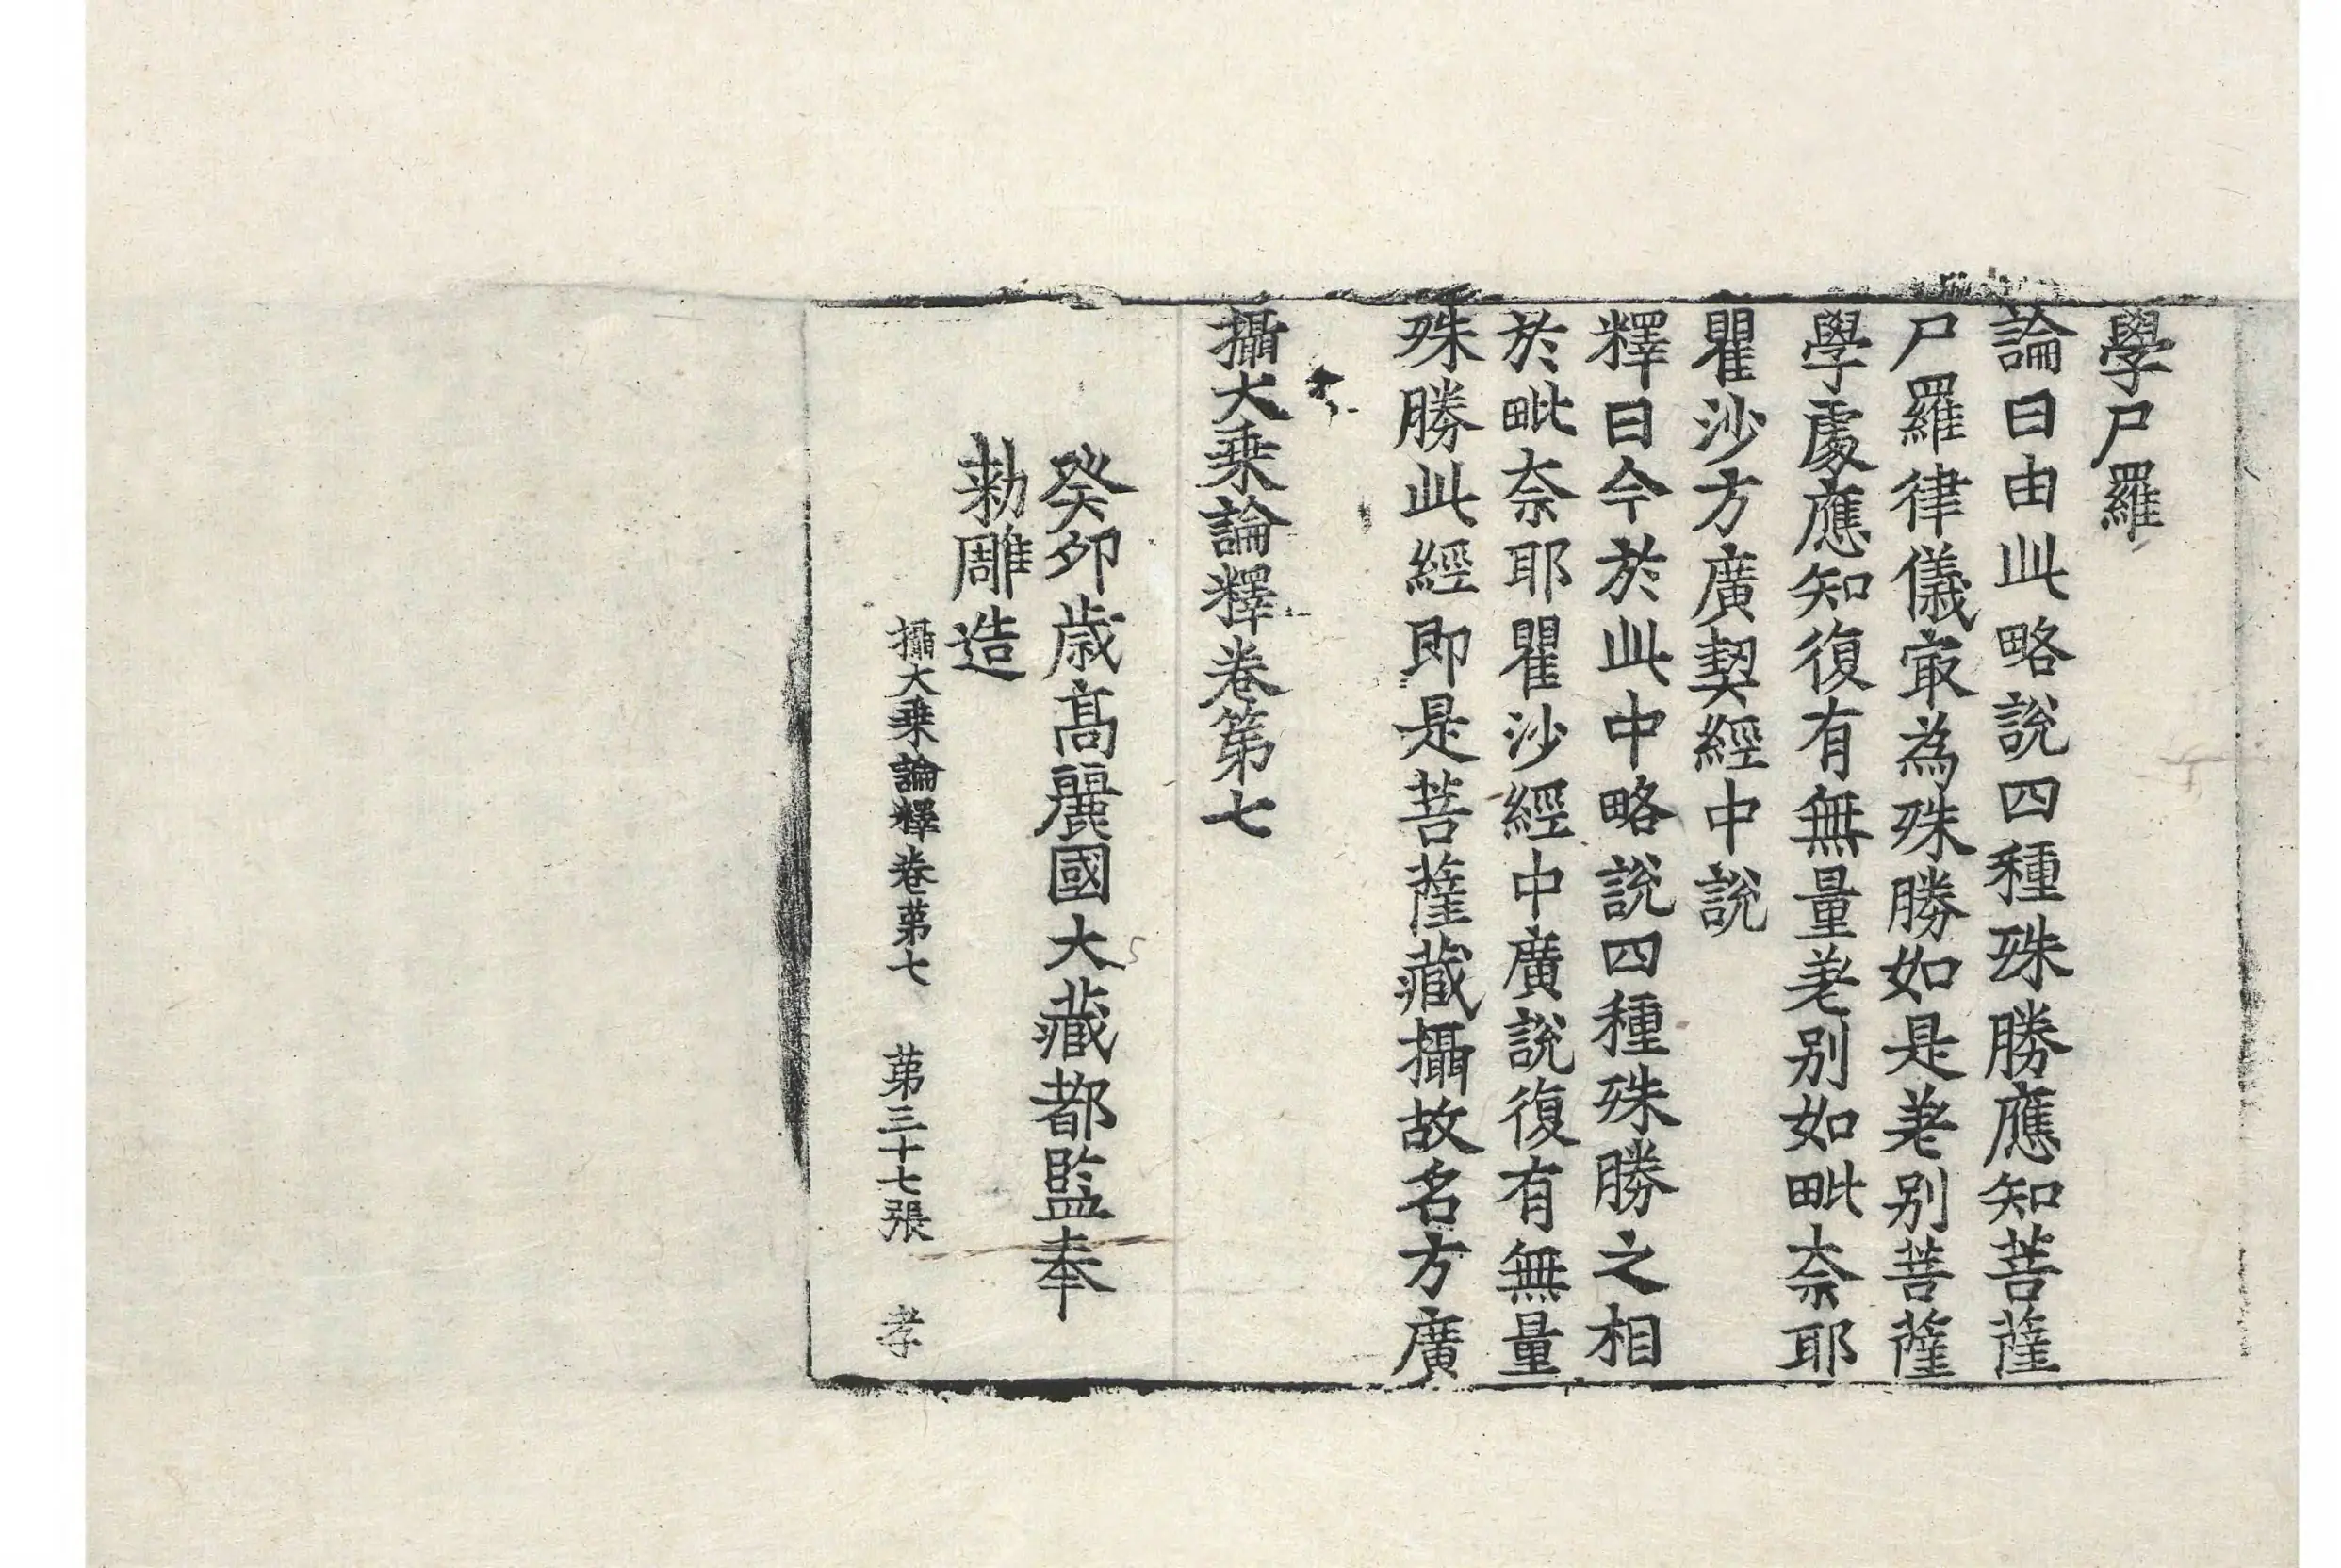 學尸羅
論曰由此略說四種殊勝應知菩薩
尸羅律儀㝡為殊勝如是差別菩薩
學處應知復有無量差別如毗奈耶
瞿沙方廣契經中說
釋曰今於此中略說四種殊勝之相
於毗奈耶瞿沙經中廣說復有無量
殊勝此經即是菩薩藏攝故名方廣
攝大乗論釋卷第七
癸卯歲高麗國大藏都監奉
勑雕造
攝大乗論釋卷苐七 苐三十七張 孝